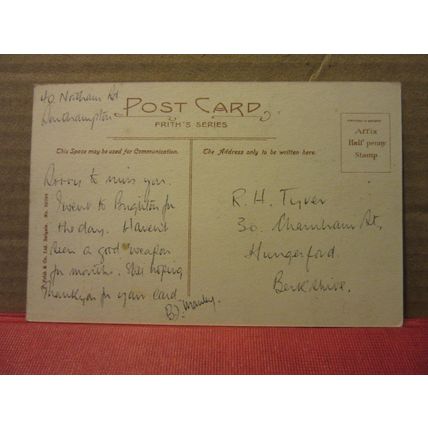 40 Northam Rd
Southampton
POST CARD
FRITH'S SERIES
This Space may be used for Communication.
The Address only to be written here.
Affix
Half penny
Stamp
Sorry to miss you.
I went to Brighton for
the day. Haven't
seen a good weapon
for months. Still hoping
Thankyou for your card
B.J. Manley.
R. H. Tyver
30. Charnham St,
Hungerford.
Berkshire.
Frith & Co. Ltd. Reigate. No.